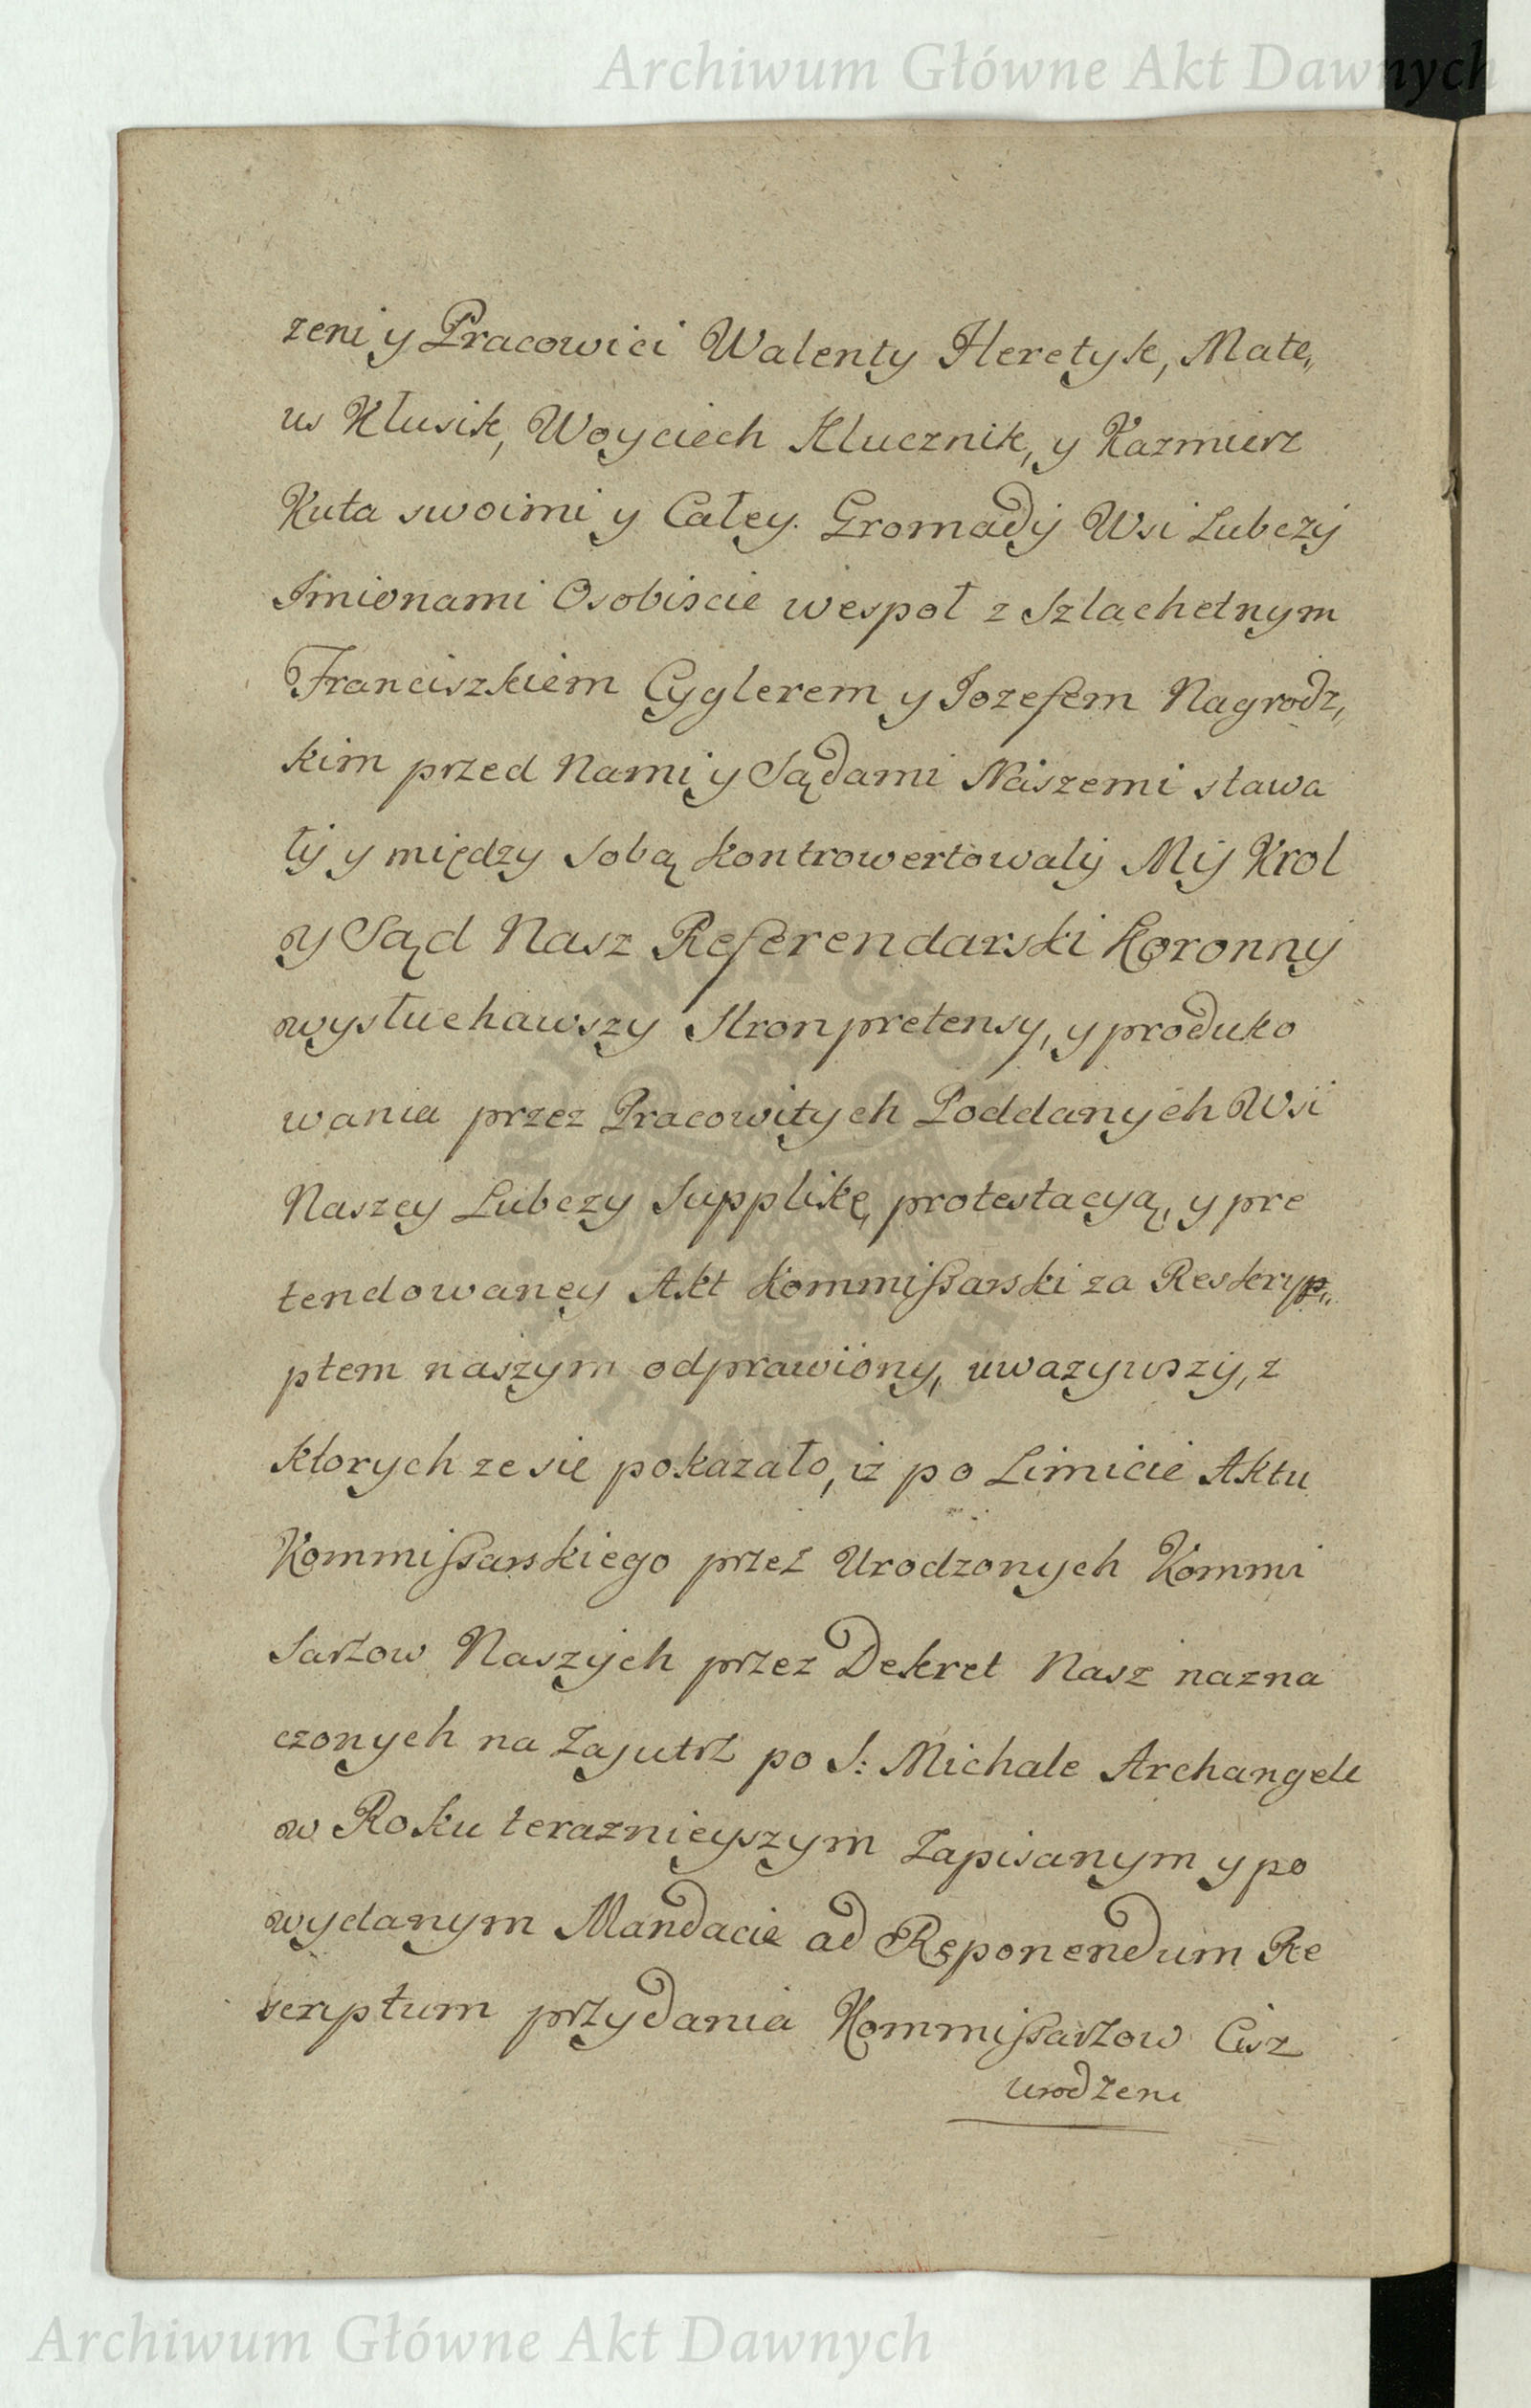 Archiwum Główne Akt Dawnych
zeni y Pracowici Walenty Heretyk, Mate„
us Kłusik, Woyciech Klucznik, y Kazmierz
Kuta swoimi y Całey. Gromadÿ Wsi Lubczÿ
Imionami Osobiscie wespoł z Szlachetnym
Franciszkiem Cyglerem y Jozefem Nagrodz,
kim przed Nami y Sądami Naszemi stawa
lÿ y między sobą kontrowertowalÿ Mÿ Krol
y Sąd Nasz Referendarski Koronnÿ
wysłuchawszy Stron pretensy, y produko
wania przez Pracowitych Poddanych Wsi
Naszey Lubczy Supplikę, protestacyą, y pre
tendowaney Akt Kommißarski za Reskryp„
ptem naszym odprawiony, uwazywszÿ, z
ktorych ze się pokazało, iż po Limicie Aktu
Kommißarskiego przez Urodzonych Kommi
sarzow Naszÿch przez Dekret Nasz nazna
czonych na Zajutrz po S: Michale Archangele
w Roku teraznieyszym Zapisanym y po
wydanym Mandacie ad Reponendum Re
scriptum przydania Kommißarzow Ciż
urodzeni
ARCHIWUM GŁÓWNE AKT DAWNYCH
Archiwum Główne Akt Dawnych